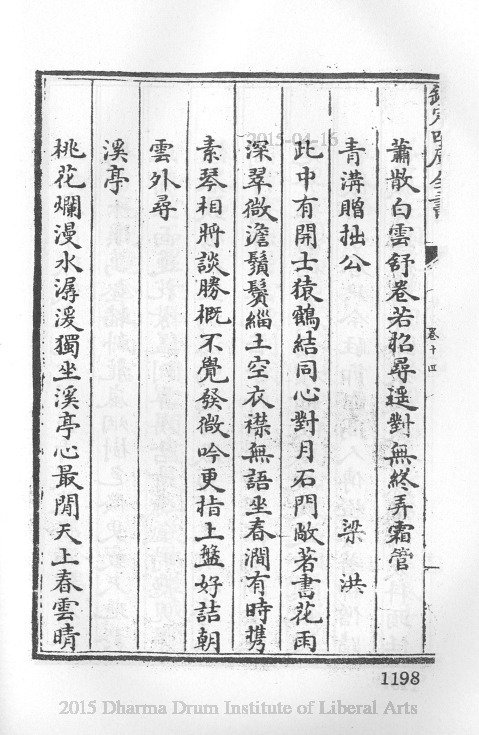 欽定四庫全書
卷十四
蕭散白雲舒卷若招尋遥對無終弄霜管
青溝贈拙公 梁洪
此中有開士猿鶴結同心對月石門敞著書花雨
深翠微澹鬚鬢緇土空衣襟無語坐春澗有時携
素琴相將談勝概不覺發微吟更指上盤好詰朝
雲外尋
溪亭
桃花爛漫水潺湲獨坐溪亭心最閒天上春雲晴
1198
2015-04-16
2015 Dharma Drum Institute of Liberal Arts